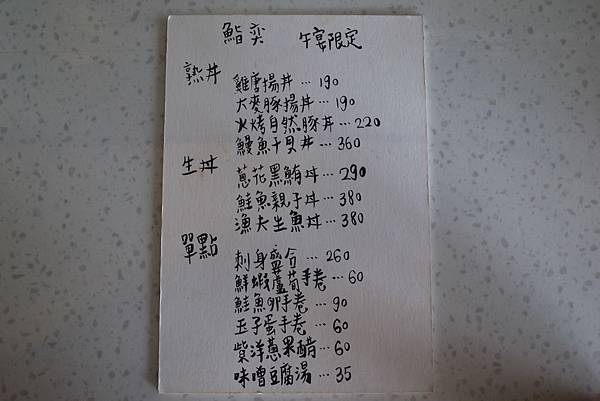 鮨奕 午宴限定
熟丼
雞唐揚丼…190
大麥豚揚丼…190
火烤自然豚丼…220
鰻魚干貝丼…360
生丼
蔥花黑鮪丼…290
鮭魚親子丼…380
漁夫生魚丼…380
單點
刺身盛合…260
鮮蝦蘆筍手卷…60
鮭魚卵手卷…90
玉子蛋手卷…60
紫洋蔥果醋…60
味噌豆腐湯…35